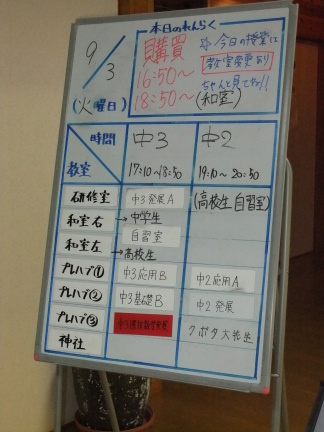 本日のれんらく
9/3
(火曜日)
購買
16:50～
18:50～
(和室)
☆今日の授業は
教室変更あり
ちゃんと見てね!!
時間
教室
中3
17:10～18:50
中2
19:10～20:50
研修室
中3発展A
(高校生 自習室)
和室右
→中学生
自習室
和室左
→高校生
プレハブ①
中3応用B
中2応用A
プレハブ②
中3基礎B
中2発展
プレハブ③
クボタ大先生
神社